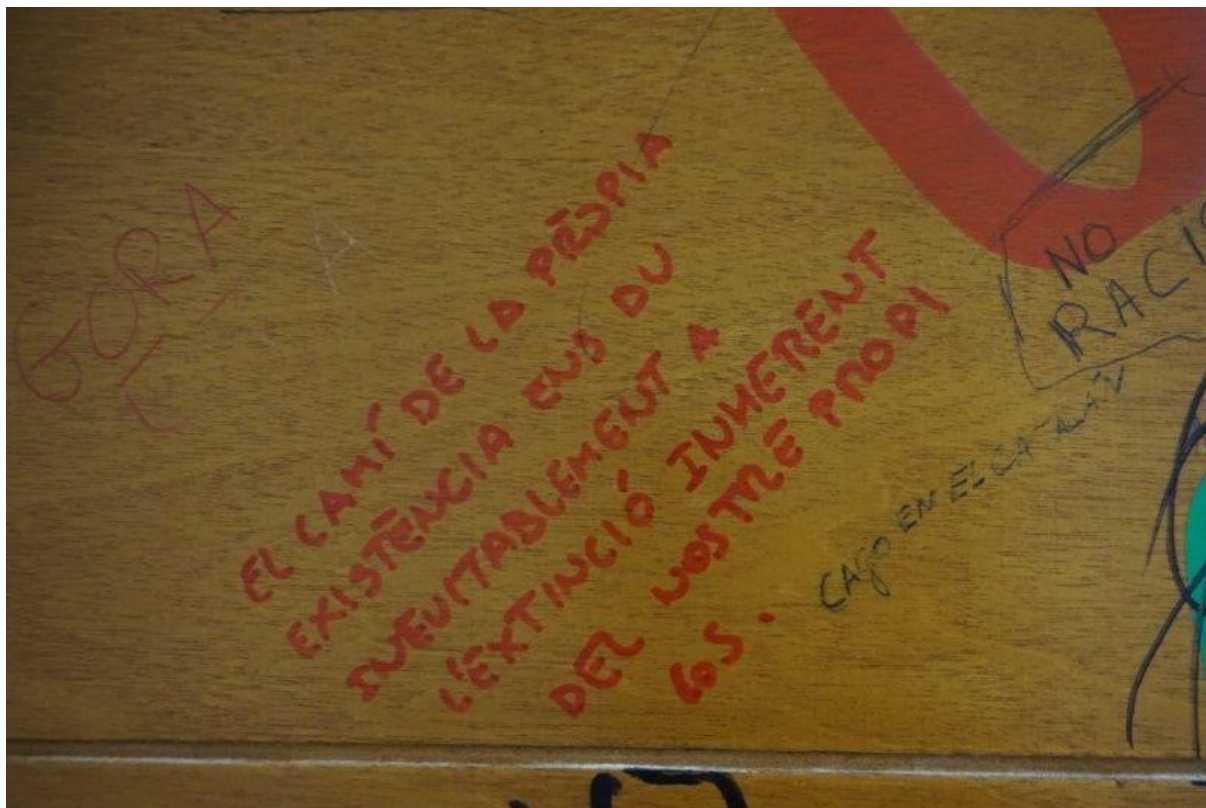 GORA
EL CAMÍ DE LA PRÒPIA
EXISTÈNCIA ENS DU
INEVITABLEMENT A
L'EXTINCIÓ INHERENT
DEL NOSTRE PROPI
COS.
NO
CAGO EN EL CATALAN